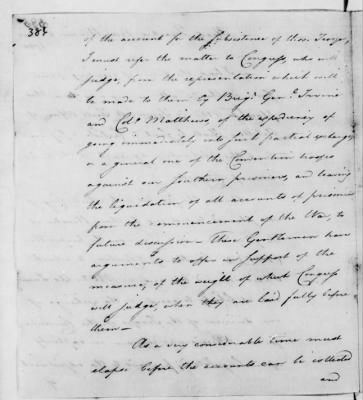 383
of the account for the subsistence of those Troops,
I must refer the matter to Congress, who will
judge from the representation which will
be made to them by Brigr. Genl. Irvine
and Colo. Matthews, of the expediency of
going immediately into such partial exchange
or a general one of the Convention troops
against our Southern prisoners, and leaving
the liquidation of all accounts of prisoners
from the commencement of the War, to
future discussion — These Gentlemen have
arguments to offer in support of the
measure, of the weight of which Congress
will judge, when they are laid fully before
them —
As a very considerable time must
elapse before the accounts can be collected
and